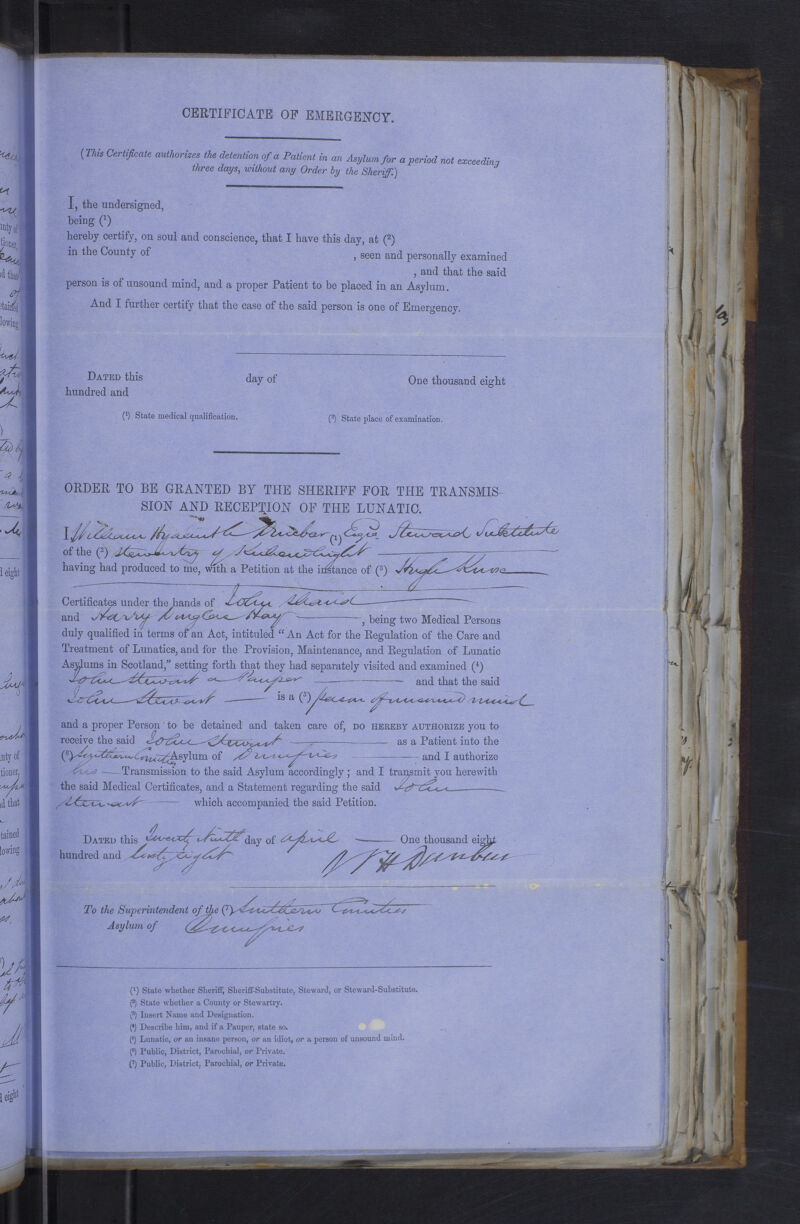 CERTIFICATE OF EMERGENCY.
(This Certificate authorizes the detention of a Patient in an Asylum for a period not exceeding
three days, without any Order by the Sheriff.)
I, the undersigned,
being (1)
hereby certify, on soul and conscience, that I have this day, at (2)
in the County of , seen and personally examined
, and that the said
person is of unsound mind, and a proper Patient to be placed in an Asylum.
And I further certify that the case of the said person is one of Emergency.
DATED this day of One thousand eight
hundred and
(1) State medical qualification. (2) State place of examination.
ORDER TO BE GRANTED BY THE SHERIFF FOR THE TRANSMIS-
SION AND RECEPTION OF THE LUNATIC.
I William Hyacinth Dunbar (1) Esqre Steward Substitute
of the (2) Stewartry of Kirkcudbright
having had produced to me, with a Petition at the instance of (3) Hugh
Certificates under the hands of John Shand
and Harry Hay , being two Medical Persons
duly qualified in terms of an Act, intituled "An Act for the Regulation of the Care and
Treatment of Lunatics, and for the Provision, Maintenance, and Regulation of Lunatic
Asylums in Scotland," setting forth that they had separately visited and examined (4)
John Stewart a Pauper and that the said
John Stewart is a (5) person of unsound mind
and a proper Person to be detained and taken care of, DO HEREBY AUTHORIZE you to
receive the said John Stewart as a Patient into the
(6) Southern Counties Asylum of Dumfries and I authorize
his Transmission to the said Asylum accordingly; and I transmit you herewith
the said Medical Certificates, and a Statement regarding the said John
Stewart which accompanied the said Petition.
DATED this Twenty Ninth day of April One thousand eight
hundred and Sixty Eight W H Dunbar
To the Superintendent of the (7) Southern Counties
Asylum of Dumfries
(1) State whether Sheriff, Sheriff-Substitute, Steward, or Steward-Substitute.
(2) State whether a County or Stewartry.
(3) Insert Name and Designation.
(4) Describe him, and if a Pauper, state so.
(5) Lunatic, or an insane person, or an idiot, or a person of unsound mind.
(6) Public, District, Parochial, or Private.
(7) Public, District, Parochial, or Private.